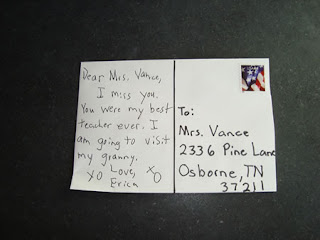 Dear Mrs. Vance,
I miss you.
You were my best
teacher ever. I
am going to visit
my granny.
XO Love, XO
Erica
To:
Mrs. Vance
2336 Pine Lane
Osborne, TN
37211